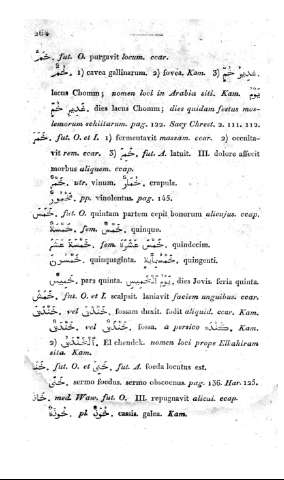 264
خَمَّ. fut. O. purgavit locum. ccar.
خُمٌّ. 1) cavea gallinarum. 2) fovea. Kam. 3) غَدِيرُ خُمٍّ
lacus Chomm; nomen loci in Arabia siti. Kam. يَوْمُ
غَدِيرِ خُمٍّ. dies lacus Chomm; dies quidam festus mos-
lemorum schiitarum. pag. 122. Sacy Chrest. 2. 111. 112.
خَمَرَ. fut. O. et I. 1) fermentavit massam. ccar. 2) occulta-
vit rem. ccar. 3) خَمِرَ. fut. A. latuit. III. dolore affecit
morbus aliquem. ccap.
خَمْرٌ. utr. vinum. خُمَارٌ. crapula.
مَخْمُورٌ. pp. vinolentus. pag. 145.
خَمَسَ. fut. O. quintam partem cepit bonorum alicujus. ccap.
خَمْسَةٌ. fem. خَمْسٌ. quinque.
خَمْسَةَ عَشَرَ. fem. خَمْسَ عَشْرَةَ. quindecim.
خَمْسُونَ. quinquaginta. خَمْسُمِايَةٍ. quingenti.
خَمِيسٌ. pars quinta. يَوْمُ ٱلْخَمِيسِ. dies Jovis. feria quinta.
خَمَشَ. fut. O. et I. scalpsit. laniavit faciem unguibus. ccar.
خَنْدَقَ. vel خَنْدَقَ. fossam duxit. fodit aliquid. ccar. Kam.
خَنْدَقٌ. vel خَنْدَقٌ. fossa. a persico كنده. Kam.
2) ٱلْخَنْدَقُ. El chendek. nomen loci prope Elkahiram
sita. Kam.
خَنَا. fut. O. et خَنِيَ. fut. A. foeda locutus est.
خَنًى. sermo foedus. sermo obscoenus. pag. 136. Har. 125.
خَاذَ. med. Waw. fut. O. III. repugnavit alicui. ccap.
خُوذَةٌ. pl. خُوَذٌ. cassis. galea. Kam.